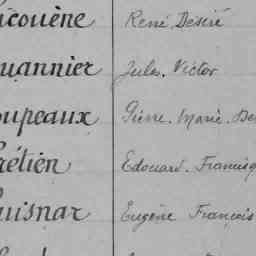 acouène René Désiré
uannier Jules. Victor
oupeaux Pierre. Marie. De
rétien Edouard. Franciq
uisnar Eugène François